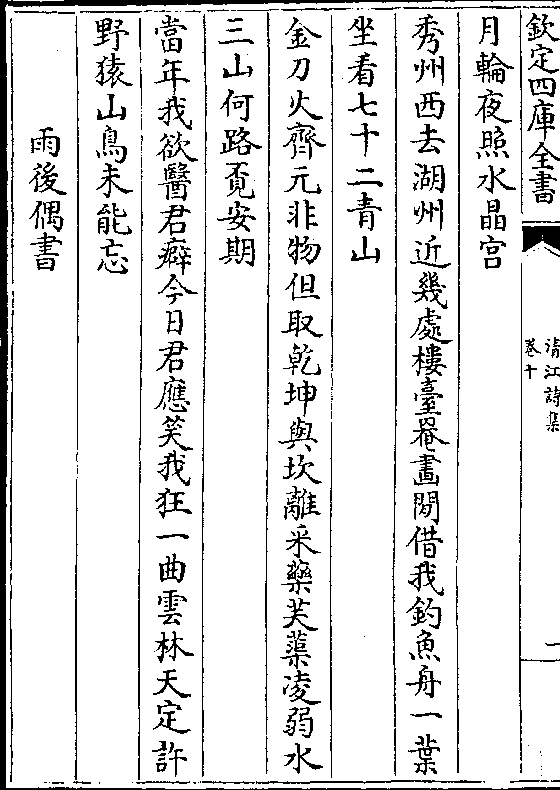 欽定四庫全書
清江詩集
卷十
二
月輪夜照水晶宮
秀州西去湖州近幾處樓臺罨畫間借我釣魚舟一葉
坐看七十二青山
金刀火齊元非物但取乾坤與坎離采藥芙蕖凌弱水
三山何路覔安期
當年我欲醫君癖今日君應笑我狂一曲雲林天定許
野猿山鳥未能忘
雨後偶書